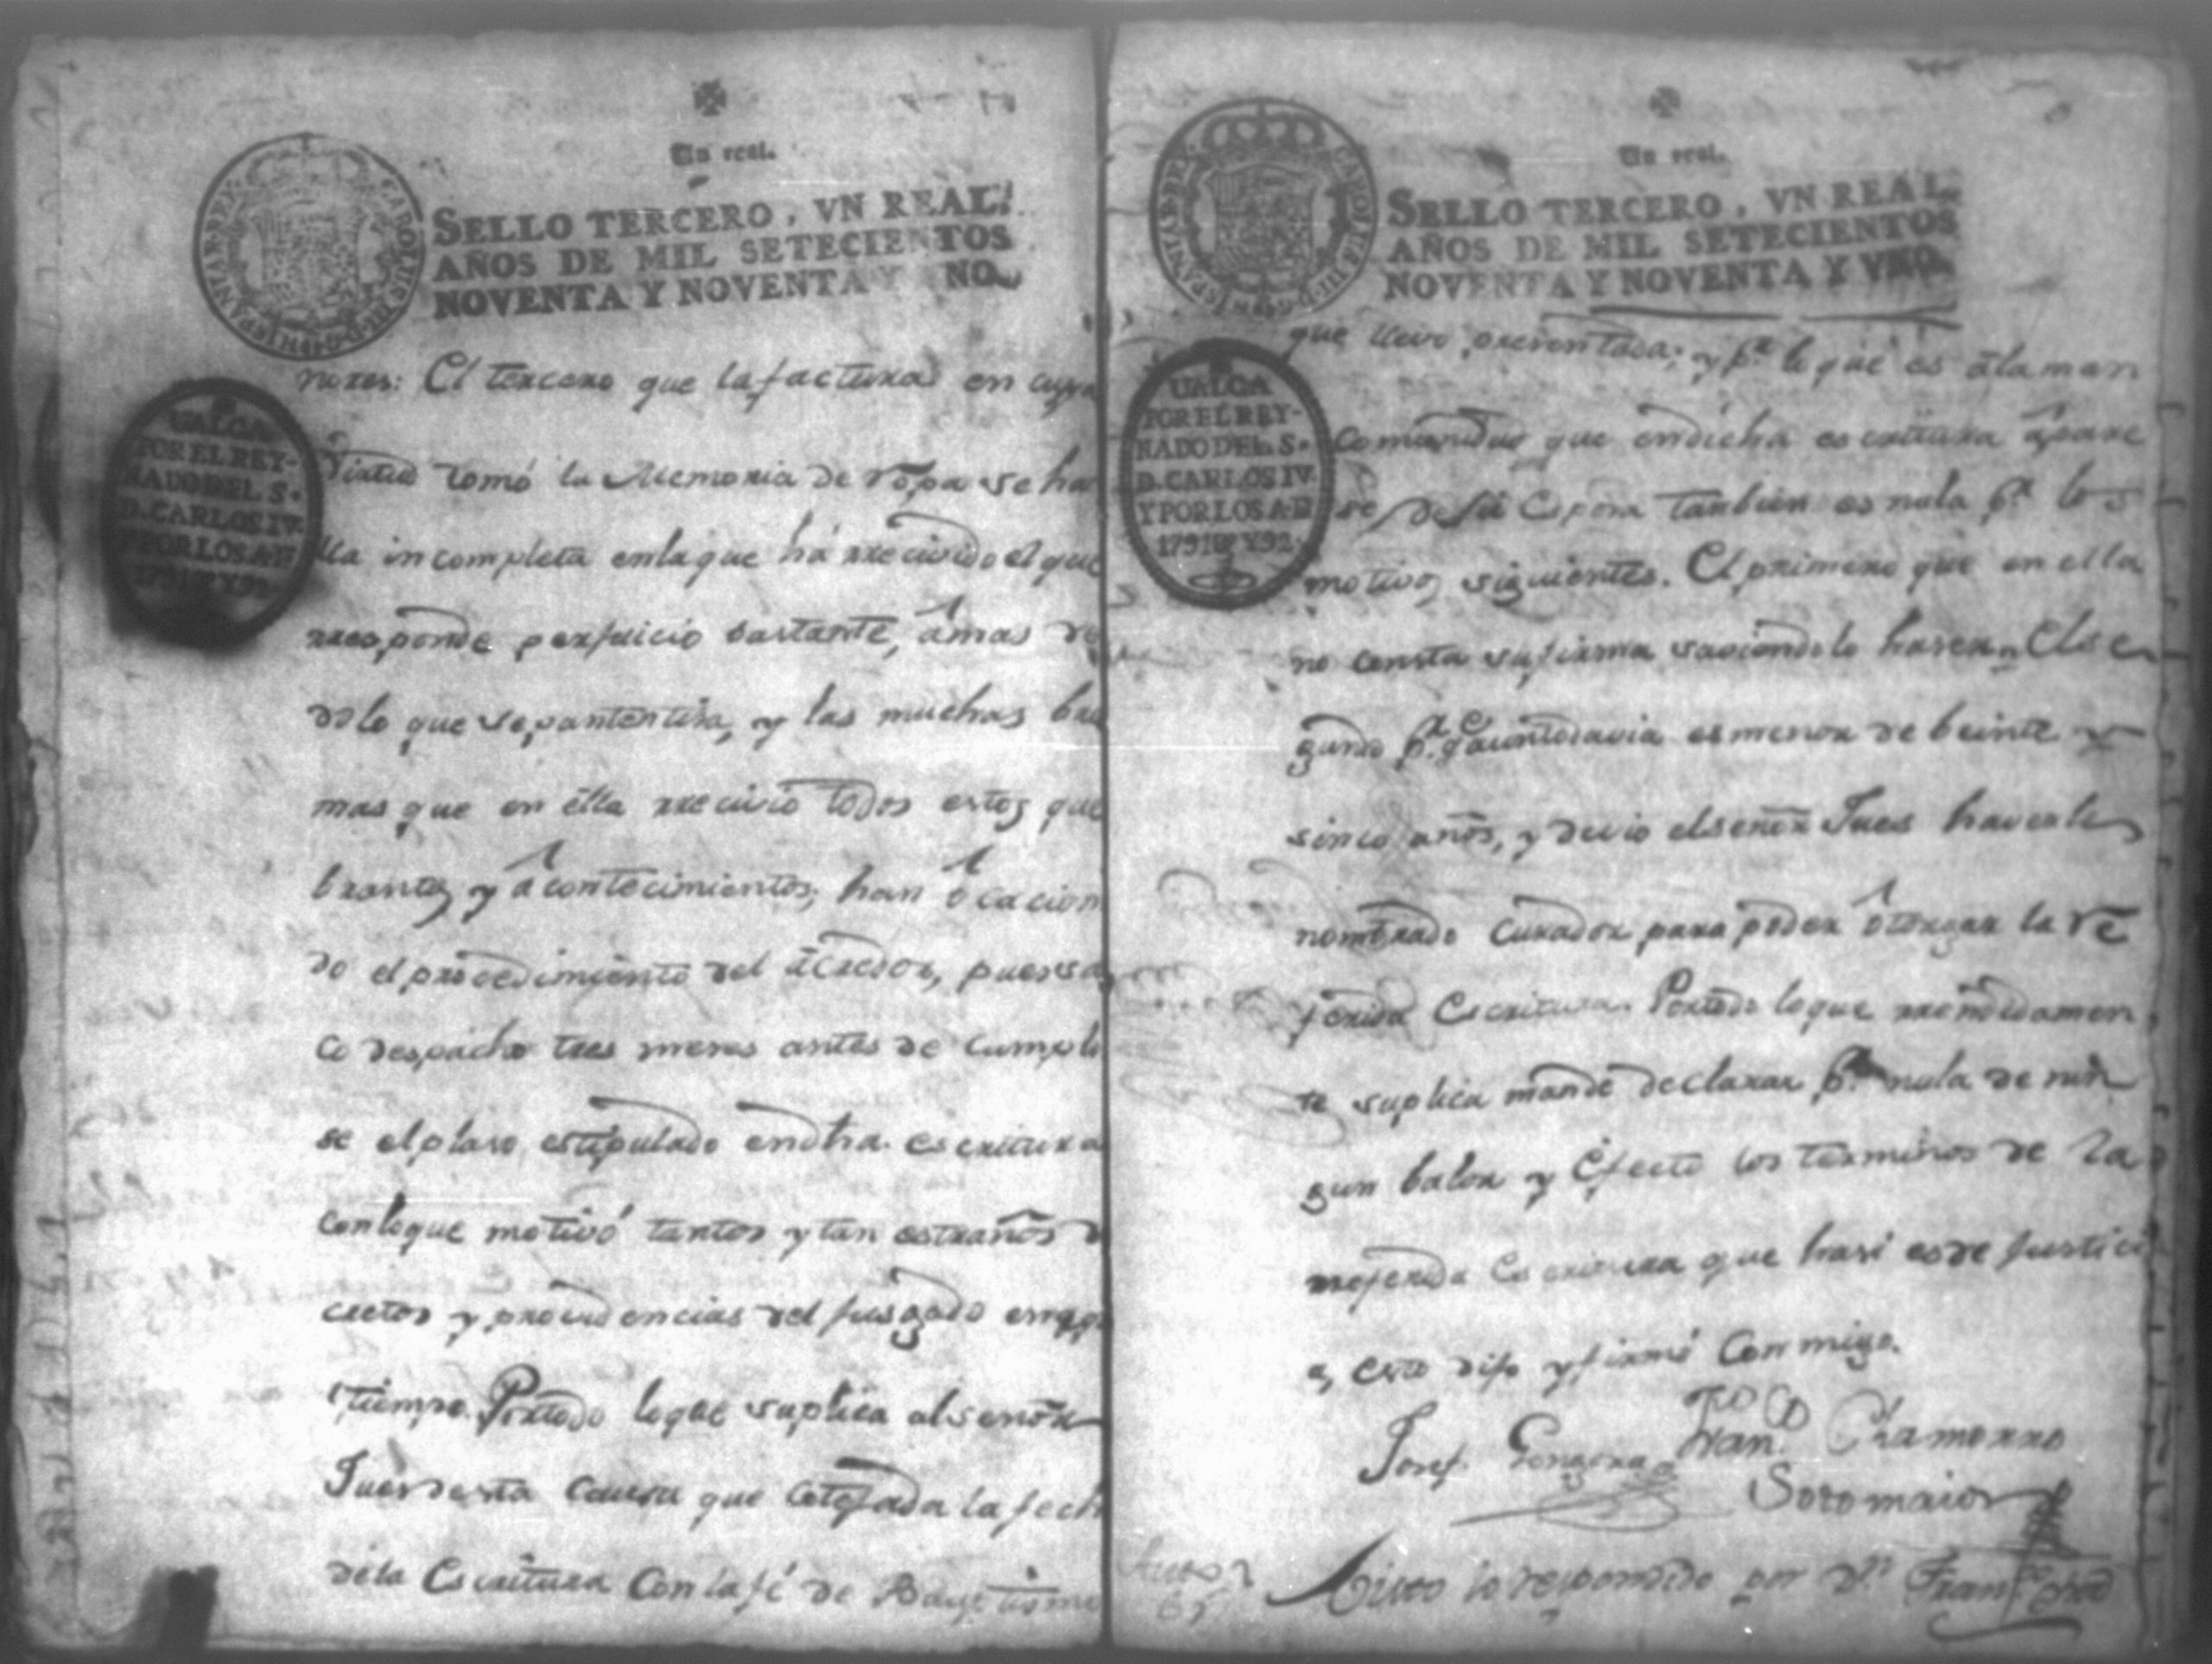 Un real.
SELLO TERCERO, VN REAL:
AÑOS DE MIL SETECIENTOS
NOVENTA Y NOVENTA Y NO.
CAROLUS III D G HISPANIAR REX
UALGA
POR EL REY-
NADO DEL S.
D. CARLOS IV.
Y POR LOS A. D
1791 Y 92.
nores: El tercero que la factura en cuya
Virtud tomó la Memoria de ropa se ha
lla incompleta enlaque há rrecivido el que
rresponde perjuicio bastante, ámas de
delo que se pantentisa, y las muchas bra
mas que en élla rrecivio todos estos que
brantos y ácontecimientos, han ócacion
do el procedimiento del ácredor, pues sa
co despacho tres meses antes de cumpli
se el plaso estipulado endha. escritura
conloque motivó tantos y tan estraños de
cretos y providencias del jusgado
tiempo. Portodo loque suplica al señor
Jues desta causa que cotejada la fech
dela Escritura Con la fé de Bauptismo
Un real.
SELLO TERCERO, VN REAL.
AÑOS DE MIL SETECIENTOS
NOVENTA Y NOVENTA Y VNO.
CAROLUS III D G HISPANIAR REX
UALGA
POR EL REY-
NADO DEL S.
D. CARLOS IV.
Y POR LOS A. D
1791 Y 92.
que llevo presentada; y pr. lo que es ála man
comunidad que endicha escritura ápare
se, de su Esposa tambien es nula pr. los
motivos siguientes. El primero que en ella
no consta su firma saviendolo haser. El se
gundo pr. q. auntodavia es menor de beinte y
sinco años, y devio el señor Jues haverle
nombrado curador para poder ótorgar la re
ferida Escritura. Portodo loque rrendidamen
te suplica mande declarar pr. nula de nin
gun balor y Éfecto los terminos de la
rreferida Escritura que hasi es de justici
a, esto dijo y firmó Conmigo.
Josef Gongora
Franco. Chamorro
Sotomaior
Auto
Visto lo respondido por Dn. Franco.